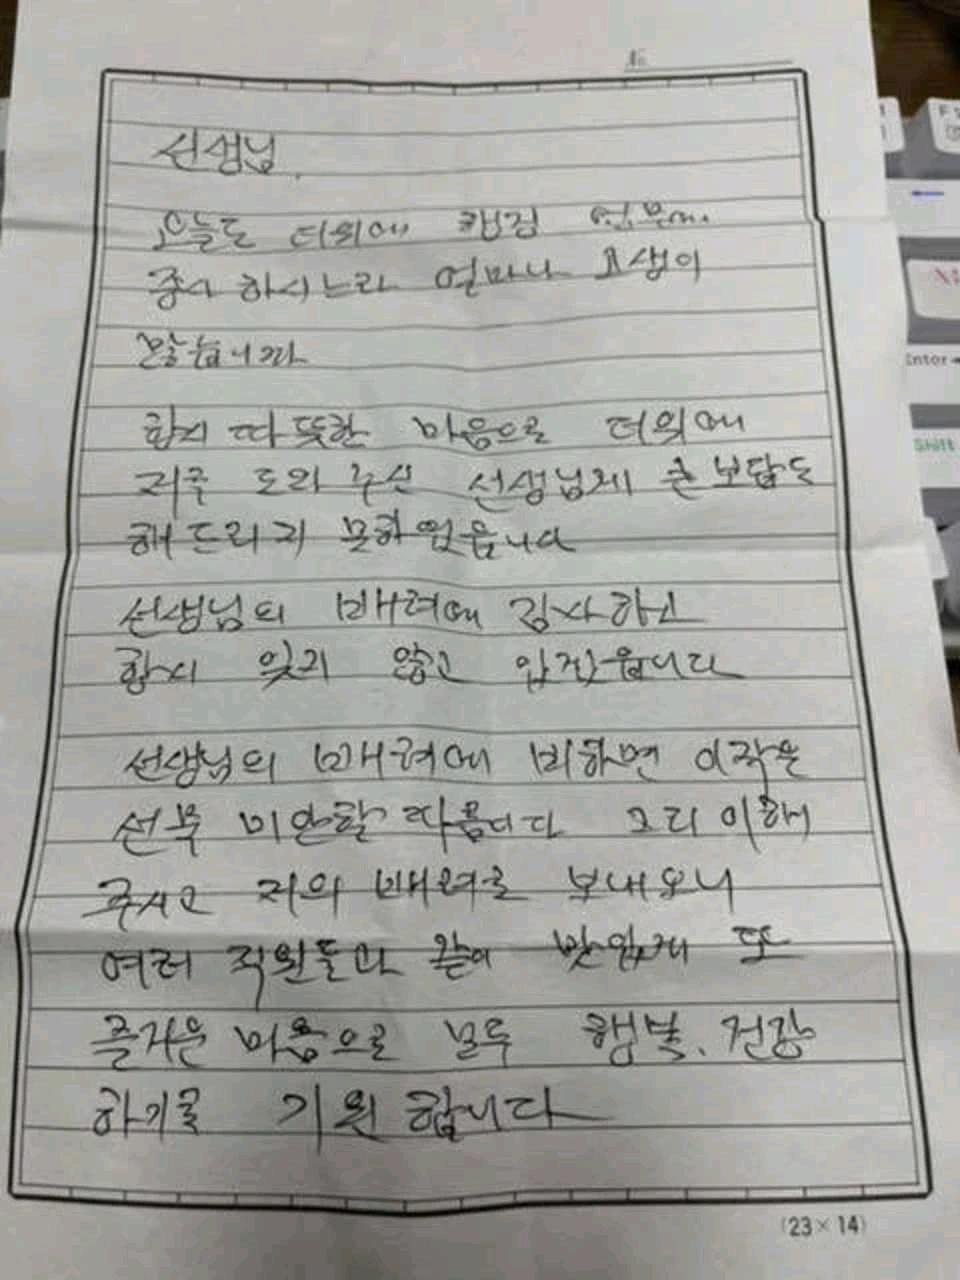 No
선생님
오늘도 더위에 업무에
종사 하시느라 얼마나 고생이
많습니까
항시 따뜻한 마음으로 더위에
저를 도와 주신 선생님께 큰 보답도
해 드리지 못하였읍니다
선생님의 배려에 감사하고
항시 잊지 않고 있겠읍니다
선생님의 배려에 비하면 이 작은
선물 미안할 따름니다 그리 이해
주시고 저의 배려를 보내오니
여러 직원들과 같이 맛있게 또
즐거운 마음으로 모두 행복, 건강
하기를 기원 합니다
(23×14)
Enter
Shift